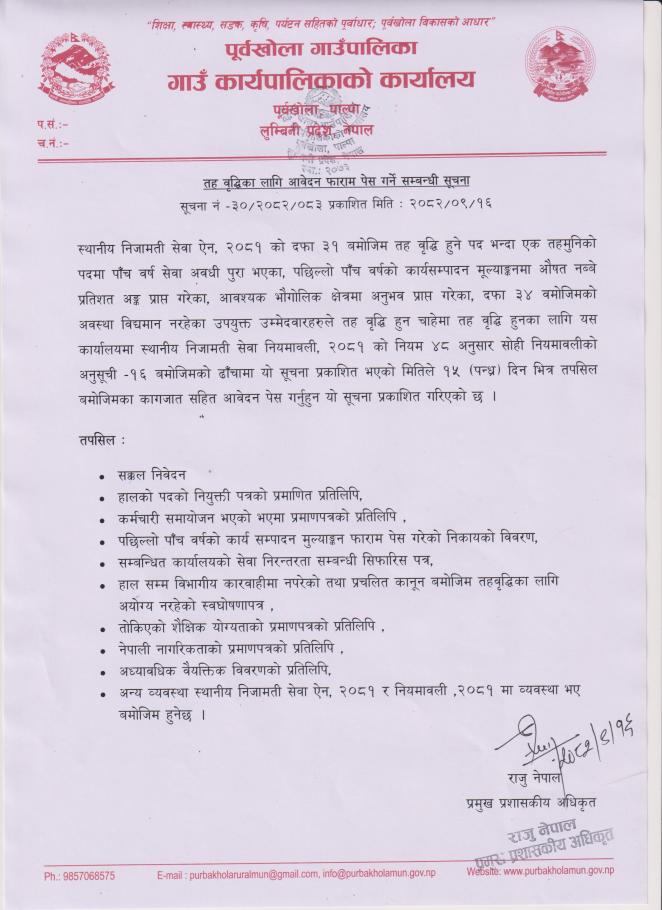 "शिक्षा, स्वास्थ्य, सडक, कृषि, पर्यटन सहितको पूर्वाधार; पूर्वखोला विकासको आधार"
पूर्वखोला गाउँपालिका
गाउँ कार्यपालिकाको कार्यालय
पूर्वखोला, पाल्पा
लुम्बिनी प्रदेश, नेपाल
प.सं.:-
च.नं.:-
तह वृद्धिका लागि आवेदन फाराम पेस गर्ने सम्बन्धी सूचना
सूचना नं -३०/२०८२/०८३ प्रकाशित मिति : २०८२/०९/१६
स्थानीय निजामती सेवा ऐन, २०८१ को दफा ३१ वमोजिम तह वृद्धि हुने पद भन्दा एक तहमुनिको
पदमा पाँच वर्ष सेवा अवधी पुरा भएका, पछिल्लो पाँच वर्षको कार्यसम्पादन मूल्याङ्कनमा औषत नब्बे
प्रतिशत अङ्क प्राप्त गरेका, आवश्यक भौगोलिक क्षेत्रमा अनुभव प्राप्त गरेका, दफा ३४ बमोजिमको
अवस्था विद्यमान नरहेका उपयुक्त उम्मेदवारहरुले तह वृद्धि हुन चाहेमा तह वृद्धि हुनका लागि यस
कार्यालयमा स्थानीय निजामती सेवा नियमावली, २०८१ को नियम ४८ अनुसार सोही नियमावलीको
अनुसूची -१६ बमोजिमको ढाँचामा यो सूचना प्रकाशित भएको मितिले १५ (पन्ध्र) दिन भित्र तपसिल
बमोजिमका कागजात सहित आवेदन पेस गर्नुहुन यो सूचना प्रकाशित गरिएको छ ।
तपसिल :
• सक्कल निवेदन
• हालको पदको नियुक्ती पत्रको प्रमाणित प्रतिलिपि,
• कर्मचारी समायोजन भएको भएमा प्रमाणपत्रको प्रतिलिपि ,
• पछिल्लो पाँच वर्षको कार्य सम्पादन मुल्याङ्कन फाराम पेस गरेको निकायको विवरण,
• सम्बन्धित कार्यालयको सेवा निरन्तरता सम्बन्धी सिफारिस पत्र,
• हाल सम्म विभागीय कारवाहीमा नपरेको तथा प्रचलित कानून बमोजिम तहवृद्धिका लागि
अयोग्य नरहेको स्वघोषणापत्र ,
• तोकिएको शैक्षिक योग्यताको प्रमाणपत्रको प्रतिलिपि ,
• नेपाली नागरिकताको प्रमाणपत्रको प्रतिलिपि ,
• अध्यावधिक वैयक्तिक विवरणको प्रतिलिपि,
• अन्य व्यवस्था स्थानीय निजामती सेवा ऐन, २०८१ र नियमावली ,२०८१ मा व्यवस्था भए
बमोजिम हुनेछ ।
२०८२/९/१६
राजु नेपाल
प्रमुख प्रशासकीय अधिकृत
राजु नेपाल
प्रमुख प्रशासकीय अधिकृत
Ph.: 9857068575 E-mail : purbakholaruralmun@gmail.com, info@purbakholamun.gov.np Website: www.purbakholamun.gov.np